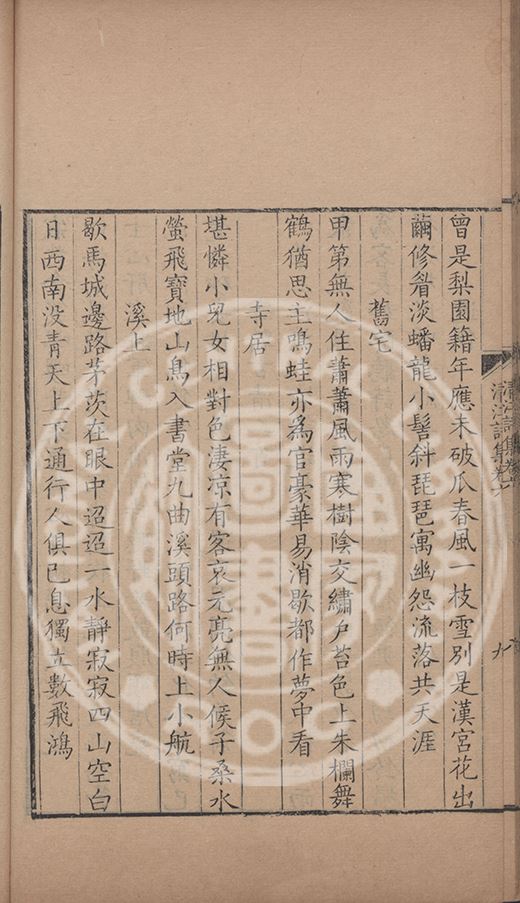 清江詩集卷六
九
曾是梨園籍年應未破瓜春風一枝雪別是漢宮花出
繭修眉淡蟠龍小髻斜琵琶寓幽怨流落共天涯
舊宅
甲第無人住蕭蕭風雨寒樹陰交繡戶苔色上朱欄舞
鶴猶思主鳴蛙亦為官豪華易消歇都作夢中看
寺居
堪憐小兒女相對色凄凉有客哀元亮無人候子桑水
螢飛寶地山鳥入書堂九曲溪頭路何時上小航
溪上
歇馬城邊路茅茨在眼中迢迢一水靜寂寂四山空白
日西南没青天上下通行人俱已息獨立數飛鴻